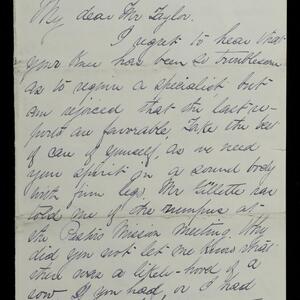 My dear Mr Taylor.
I regret to hear that
your knee has been so troublesome
as to require a specialist but
am rejoiced that the last re-
ports are favorable. Take the best
of care of yourself, as we need
your spirit in a sound body
with firm legs. Mr Gillette has
told me of the rumpus at
the Pastors Mission Meeting. Why
did you not let me know that
there was a of a
row If you had, or I had